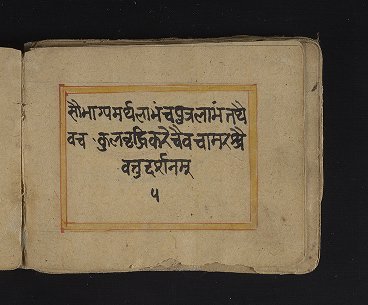 सौभाग्यमर्थलाभंचपुत्रलाभंतथै
वच कुलवृद्धिकरंचैवचामरश्चै
वतुदर्शनम्
५